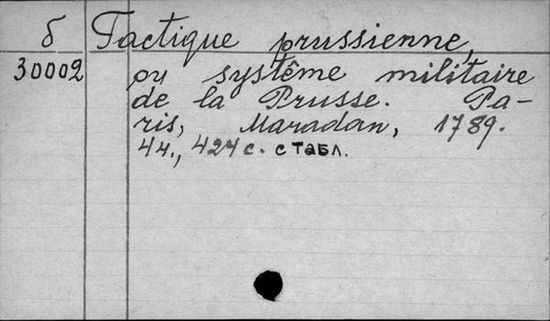 б Tactique prussienne,
30002 ou système militaire
de la Prusse. Pa-
ris, Maradan, 1789.
44., 424 с. с табл.